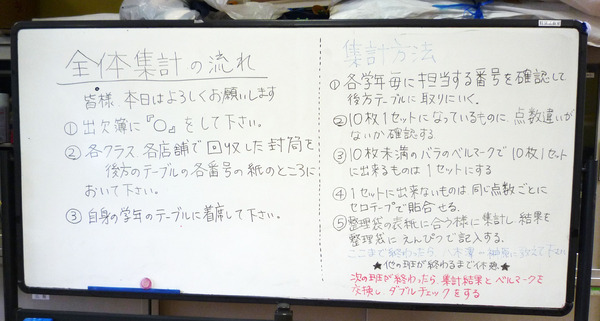 全体集計の流れ
皆様、本日はよろしくお願いします
① 出欠簿に『〇』をして下さい。
② 各クラス、各店舗で回収した封筒を
後方のテーブルの各番号の紙のところに
おいて下さい。
③ 自身の学年のテーブルに着席して下さい。
集計方法
① 各学年毎に担当する番号を確認して
後方テーブルに取りにいく。
② 10枚1セットになっているものに、点数違いが
ないか確認する。
③ 10枚未満のバラのベルマークで10枚1セット
に出来るものは1セットにする
④ 1セットに出来ないものは同じ点数ごとに
セロテープで貼合せる。
⑤ 整理袋の表紙に合う様に集計し、結果を
整理袋にえんぴつで記入する。
ここまで終わったら、
★他の班が終わるまで休憩★
次の班が終わったら、集計結果とベルマークを
交換し、ダブルチェックをする